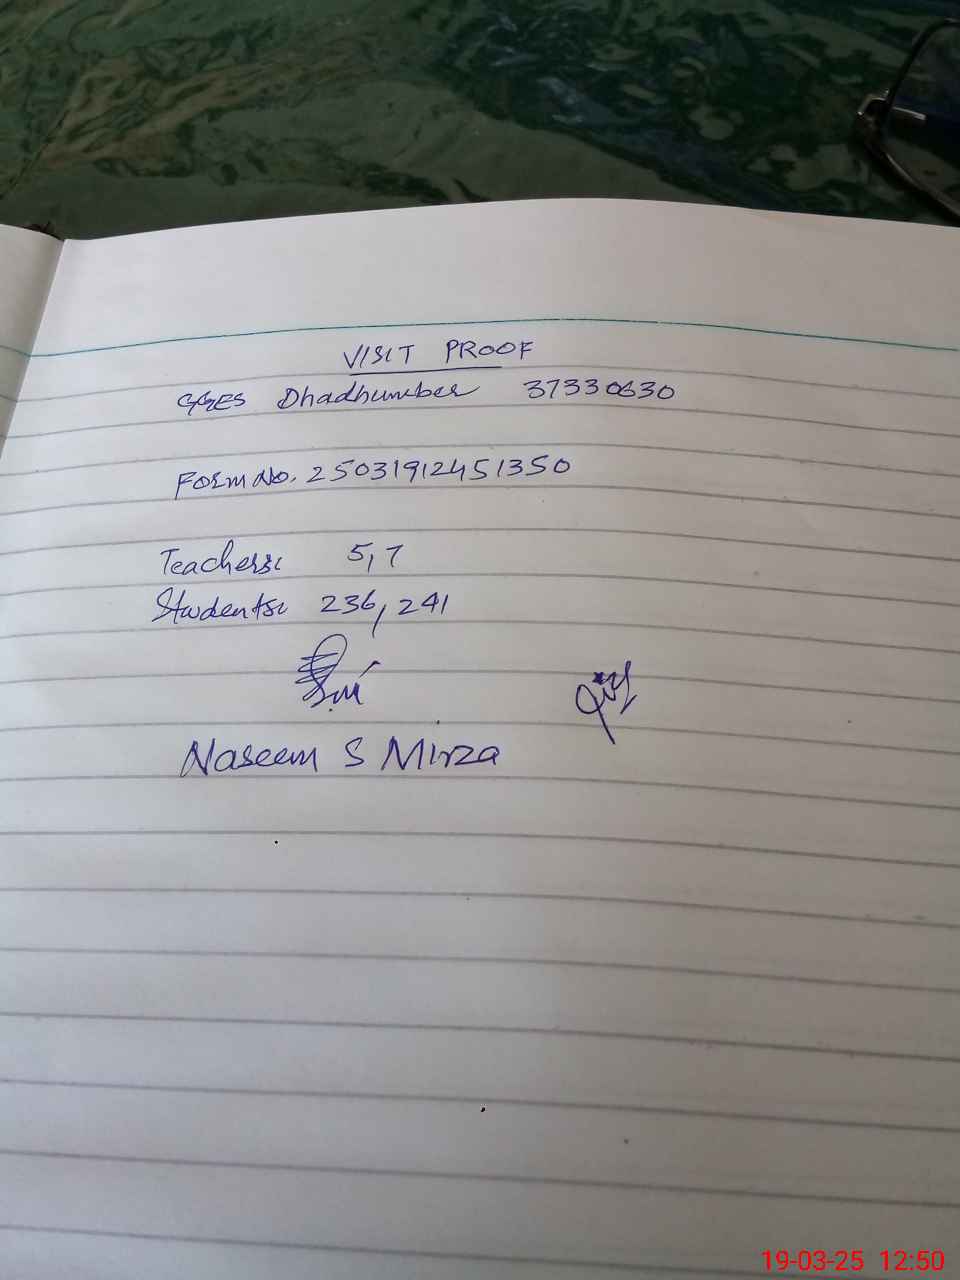 VISIT PROOF
GGES Dhadhumber 37330630
Form No. 25031912451350
Teachers: 5,7
Students: 236, 241
Naseem S Mirza
19-03-25 12:50